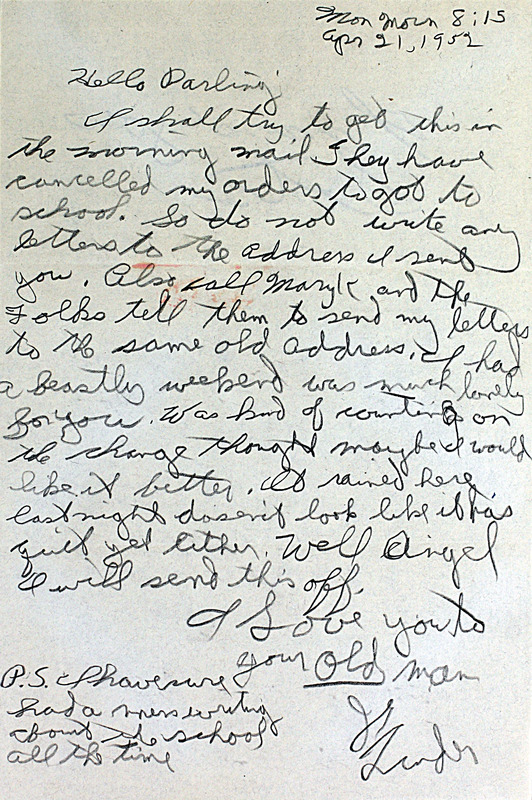 Mon Morn 8:15
Apr 21, 1952
Hello Darling
I shall try to get this in
the morning mail They have
cancelled my orders to got to
school. So do not write any
letters to the address I sent
you. Also call Mary K and the
Folks tell them to send my letters
to the same old address. I had
a beastly weekend was much lonely
for you. Was kind of counting on
the change thought maybe I would
like it better. It rained here
last night doesn't look like it has
quit yet either. Well Angel
I will send this off.
I Love you to
your Old man
P.S. I have sure
had a mess writing
about the school
all the time